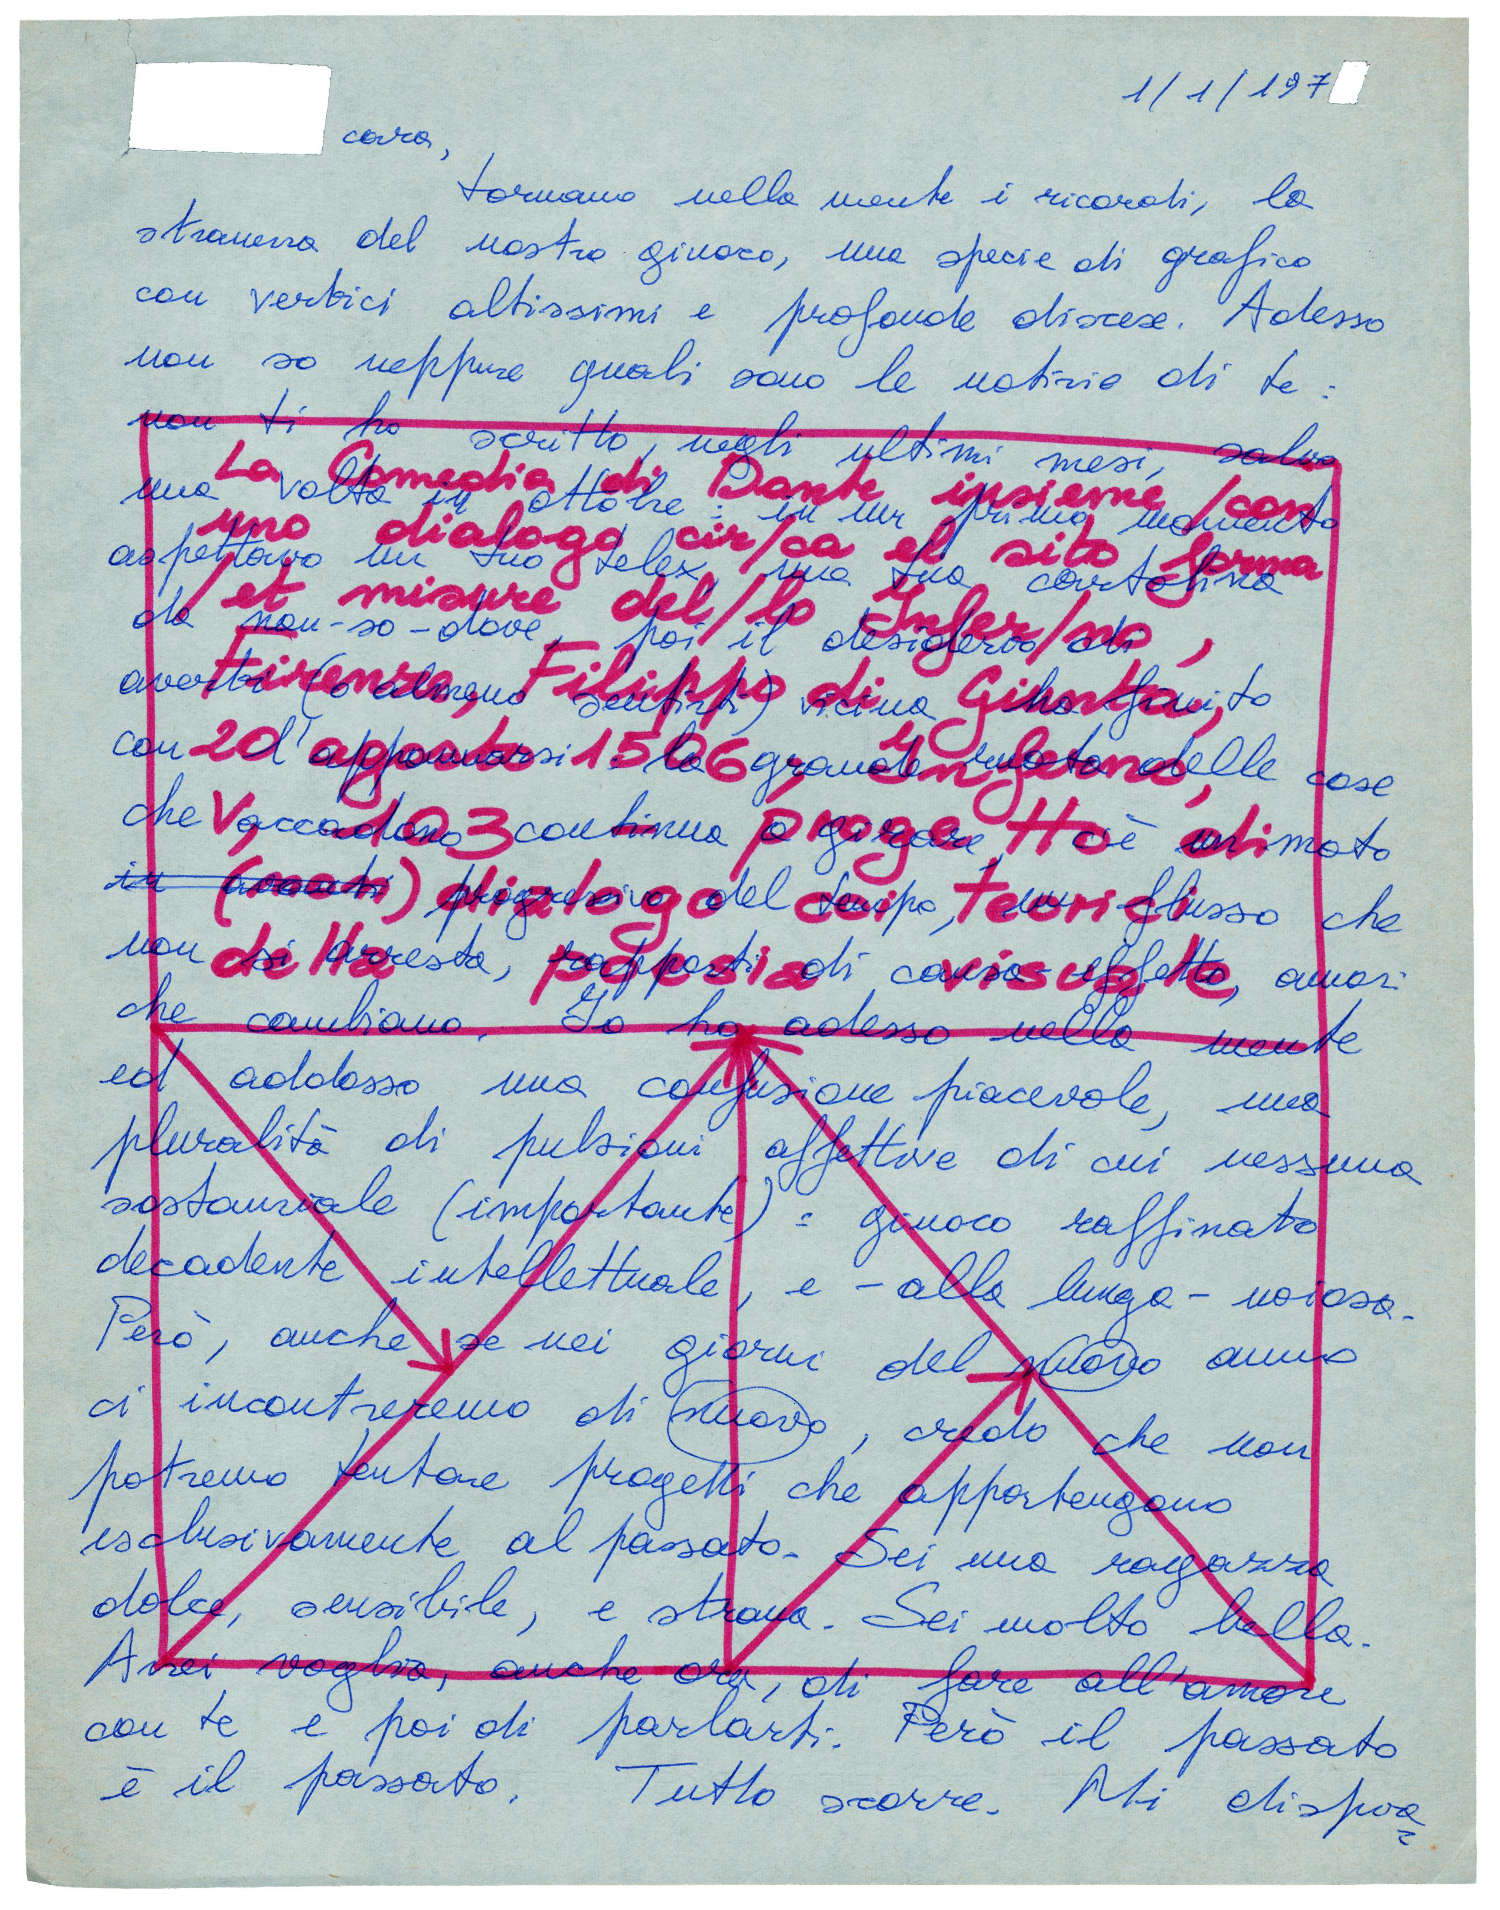 1/1/197
cara,
tornano nella mente i ricordi, la
stranezza del nostro giuoco, una specie di grafico
con vertici altissimi e profonde discese. Adesso
non so neppure quali sono le notizie di te:
non ti ho scritto, negli ultimi mesi, salvo
una volta in ottobre: in un primo momento
aspettavo un tuo telex, una tua cartolina
da non-so-dove, poi il desiderio di
averti (o almeno sentirti) vicina ha finito
con l'appannarsi: la grande ruota delle cose
che accadono continua a girare, c'è un moto
in avanti progressivo del tempo, un flusso che
non si arresta, rapporti di causa-effetto, amori
che cambiano. Io ho adesso nella mente
ed addosso una confusione piacevole, una
pluralità di pulsioni affettive di cui nessuna
sostanziale (importante): giuoco raffinato
decadente intellettuale, e - alla lunga - noioso.
Però, anche se nei giorni del nuovo anno
ci incontreremo di nuovo, credo che non
potremo tentare progetti che appartengono
esclusivamente al passato. Sei una ragazza
dolce, sensibile, e strana. Sei molto bella.
Avrei voglia, anche ora, di fare all'amore
con te e poi di parlarti. Però il passato
è il passato. Tutto scorre. Mi dispia=
La Comedia di Dante insieme /con
uno dialogo cir/ca el sito forma
/et misure del/lo Infer/no,
Firenze, Filippo di Giunta,
20 agosto 1506,
progetto di
dialogo coi teorici
della poesia visuale